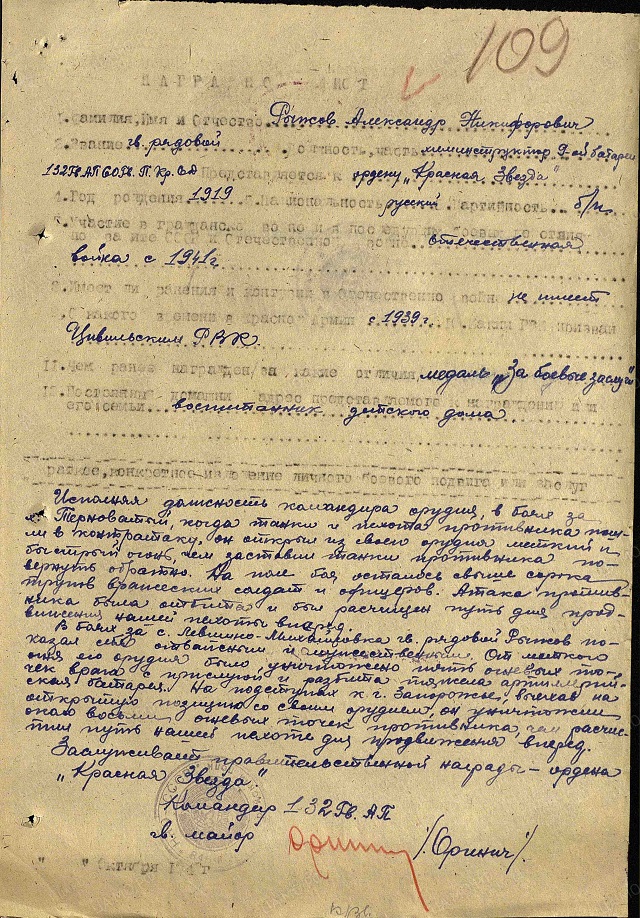 109
НАГРАДНОЙ ЛИСТ
1. Фамилия, Имя и Отчество Рыжов Александр Никифорович
2. Звание гв. рядовой должность, часть химинструктор 9-ой батареи
132 Гв. АП 60 Гв. П. Кр. СД Представляется к ордену "Красная Звезда"
4. Год рождения 1919 5. Национальность русский Партийность б/п.
7. Участие в гражданско
отечественная
война с 1941 г.
8. Имеет ли ранения и контузии в отечественно войне не имеет
С какого времени в Красной Армии с 1939 г. призван
Цивильским РВК.
11. Чем ранее награжден, за какие отличия, медаль "За боевые заслуги"
12. Постоянный домашний адрес представляемого к награждению и
его семьи воспитанник детского дома
раткое, конкретное изложение личного боевого подвига или заслуг
Исполняя должность командира орудия, в боях за
Терноватый, когда танки и пехота противника пош-
ли в контратаку, он открыл из своего орудия меткий и
быстрый огонь, чем заставил танки противника по-
вернуть обратно. На поле боя осталось свыше сорока
трупов вражеских солдат и офицеров. Атака против-
ника была отбита и был расчищен путь для прод-
вижения нашей пехоты вперед.
В боях за с. Левшино-Михайловка гв. рядовой Рыжов по-
казал себя отважным и мужественным. От меткого
огня его орудия было уничтожено пять огневых то-
чек врага с прислугой и разбита тяжелая артиллерий-
ская батарея. На подступах к г. Запорожье, выехав на
открытую позицию со своим орудием, он уничтожил
около восьми огневых точек противника, чем расчис-
тил путь нашей пехоте для продвижения вперед.
Заслуживает правительственной награды - ордена
"Красная Звезда".
Командир 132 Гв. АП
гв. майор /Оринич/.
" " октября 194 г